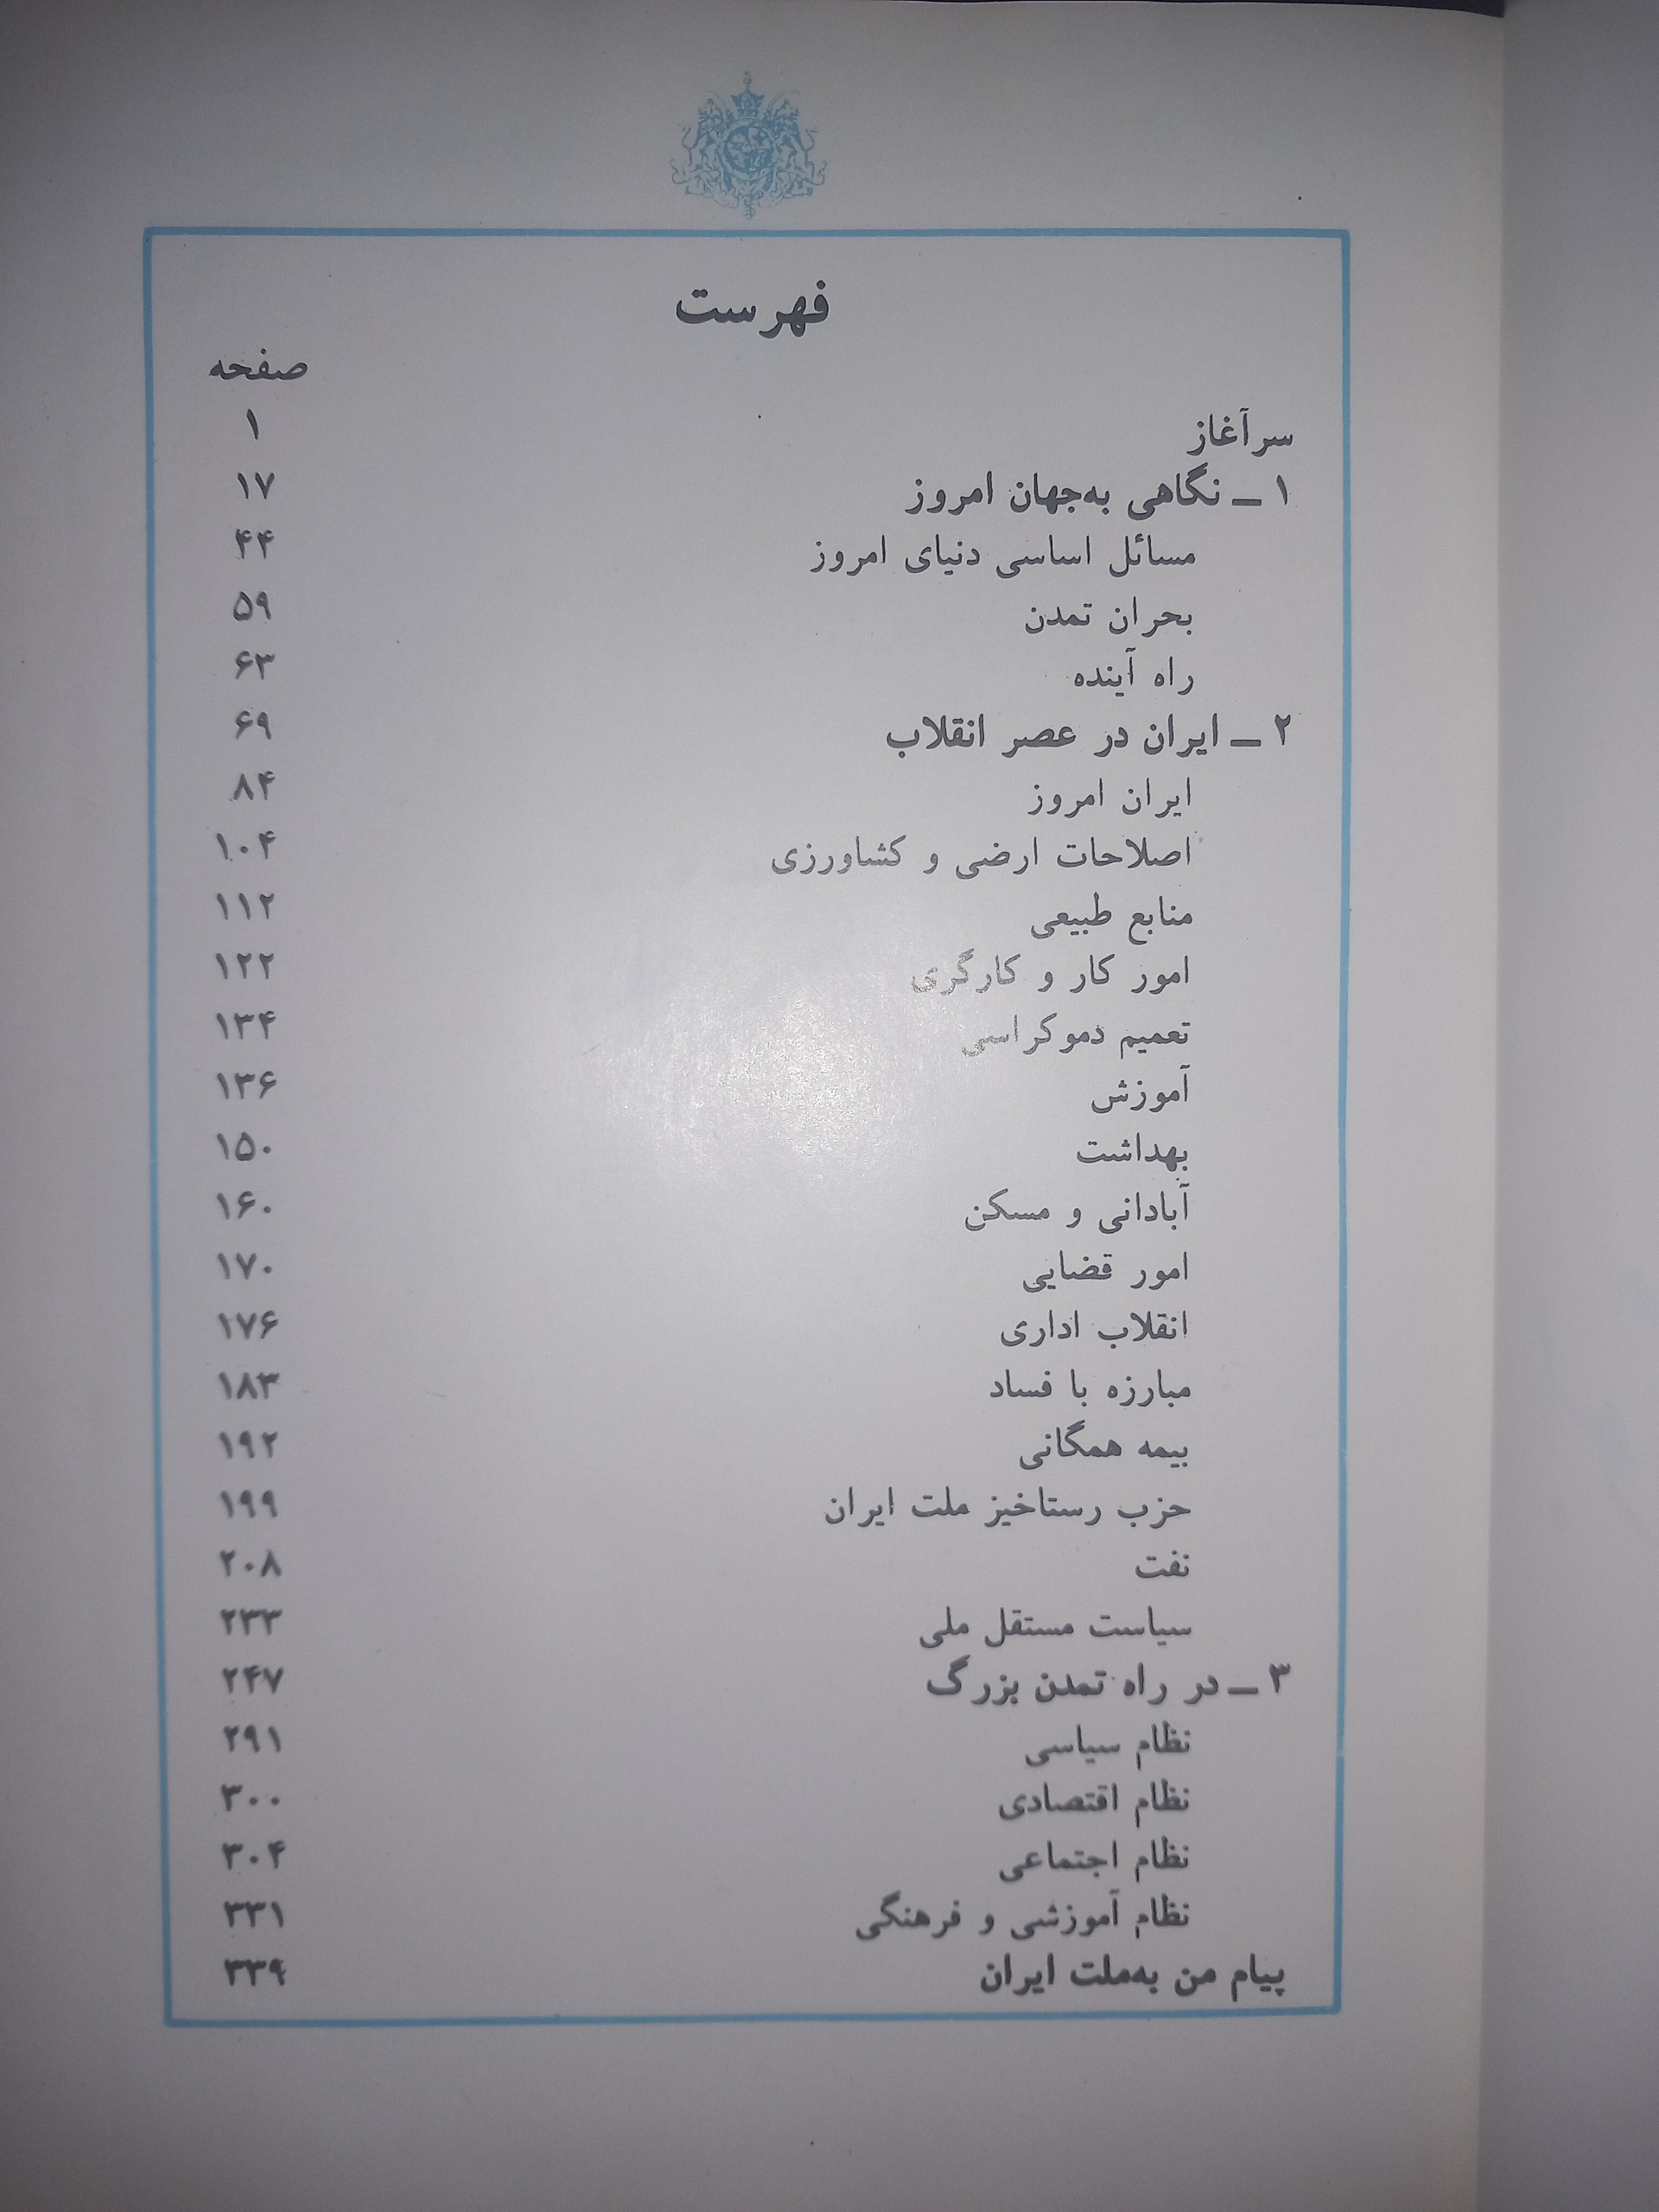 فهرست
صفحه
سرآغاز ۱
۱ – نگاهی به‌جهان امروز ۱۷
مسائل اساسی دنیای امروز ۴۴
بحران تمدن ۵۹
راه آینده ۶۳
۲ – ایران در عصر انقلاب ۶۹
ایران امروز ۸۴
اصلاحات ارضی و کشاورزی ۱۰۴
منابع طبیعی ۱۱۲
امور کار و کارگری ۱۲۲
تعمیم دموکراسی ۱۳۴
آموزش ۱۳۶
بهداشت ۱۵۰
آبادانی و مسکن ۱۶۰
امور قضایی ۱۷۰
انقلاب اداری ۱۷۶
مبارزه با فساد ۱۸۳
بیمه همگانی ۱۹۲
حزب رستاخیز ملت ایران ۱۹۹
نفت ۲۰۸
سیاست مستقل ملی ۲۳۳
۳ – در راه تمدن بزرگ ۲۴۷
نظام سیاسی ۲۹۱
نظام اقتصادی ۳۰۰
نظام اجتماعی ۳۰۴
نظام آموزشی و فرهنگی ۳۳۱
پیام من به‌ملت ایران ۳۳۹